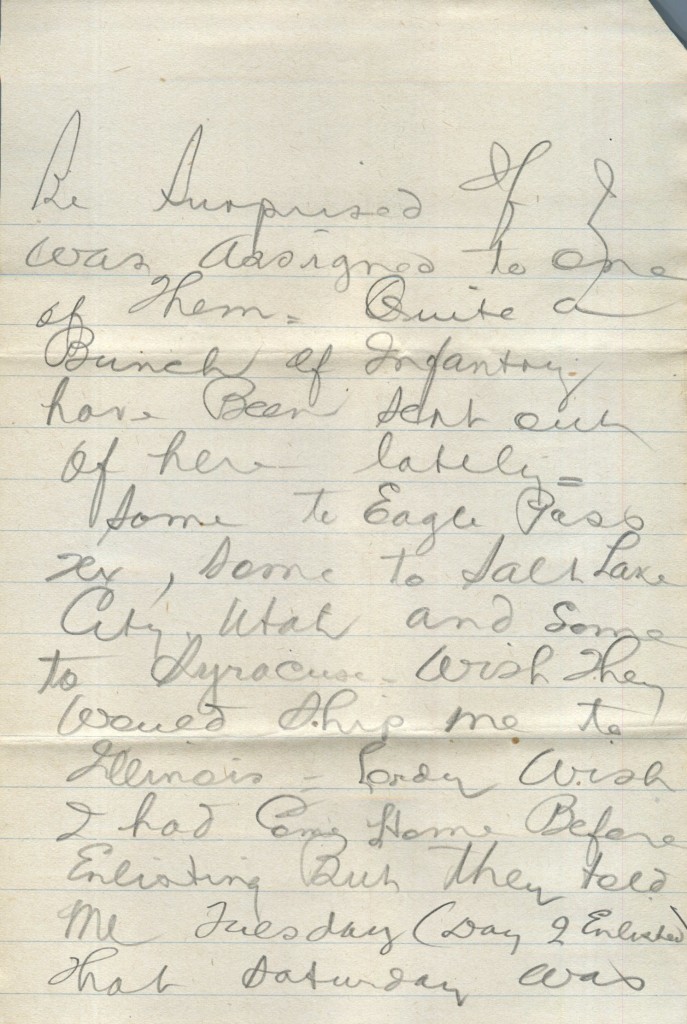 Be Surprised If I
was assigned to one
of Them = Quite a
Bunch of Infantry
have Been sent out
of here lately =
Some to Eagle Pass
Tex, Some to Salt Lake
City, Utah and Some
to Syracuse - Wish They
Would Ship me to
Illinois - Lordy Wish
I had Come Home Before
Enlisting But they told
Me Tuesday (Day I Enlisted)
That Saturday was